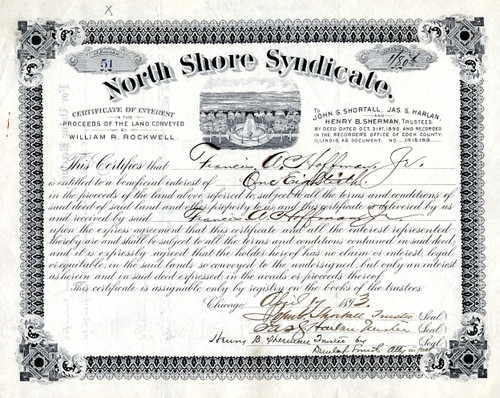 X
51
1/80th
North Shore Syndicate,
CERTIFICATE OF INTEREST
IN THE
PROCEEDS OF THE LAND CONVEYED
BY
WILLIAM R. ROCKWELL.
TO
JOHN G. SHORTALL, JAS. S. HARLAN,
AND
HENRY B. SHERMAN, TRUSTEES.
BY DEED DATED OCT. 31ST, 1890 AND RECORDED
IN THE RECORDER'S OFFICE OF COOK COUNTY,
ILLINOIS AS DOCUMENT NO.
This Certifies that Francis A. Hoffman, Jr.
is entitled to a beneficial interest of One Eightieth
in the proceeds of the land above referred to, subject to all the terms and conditions
of said deed of said land and this property to us and this certificate is delivered by us
and received by said Francis A. Hoffman, Jr.
upon the express agreement that this certificate and all the interest represented
thereby are and shall be subject to all the terms and conditions contained in said deed,
and it is expressly agreed that the holder hereof has no claim or interest, legal
or equitable, in the said lands so conveyed to the undersigned, but only an interest
as herein and in said deed expressed in the avails or proceeds thereof.
This certificate is assignable only by registry on the books of the trustees.
Chicago, April 1893.
John G. Shortall Trustee Seal
Jas. S. Harlan Trustee Seal
Henry B. Sherman Trustee by Seal
Smith atty in fact